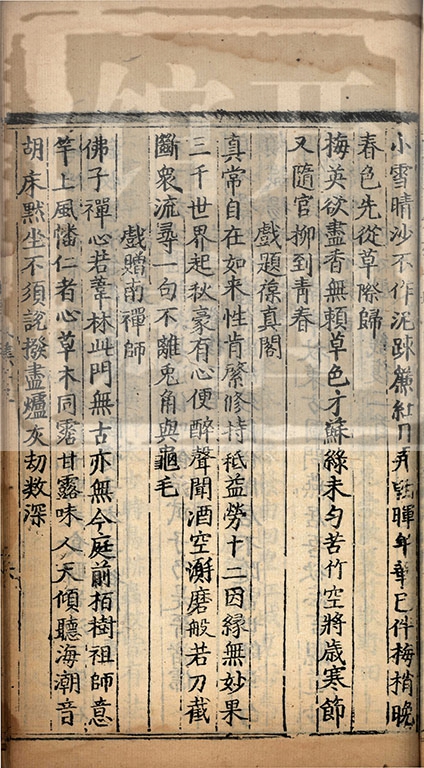 小雪晴沙不作泥踈簾紅日弄朝暉年華已伴梅梢晚
春色先從草際歸
梅英欲盡香無賴草色才蘇緑未勻苦竹空將歲寒節
又隨官柳到青春
戲題葆真閣
真常自在如来性肯縻修持秪益勞十二因縁無妙果
三千世界起秋豪有心便醉聲聞酒空𣿬磨般若刀截
斷衆流尋一句不離兎角與龜毛
戲贈南禪師
佛子禪心若葦林此門無古亦無今庭前柏樹祖師意
竿上風幡仁者心草木同霑甘露味人天傾聽海潮音
胡床黙坐不須説撥盡爐灰劫数深